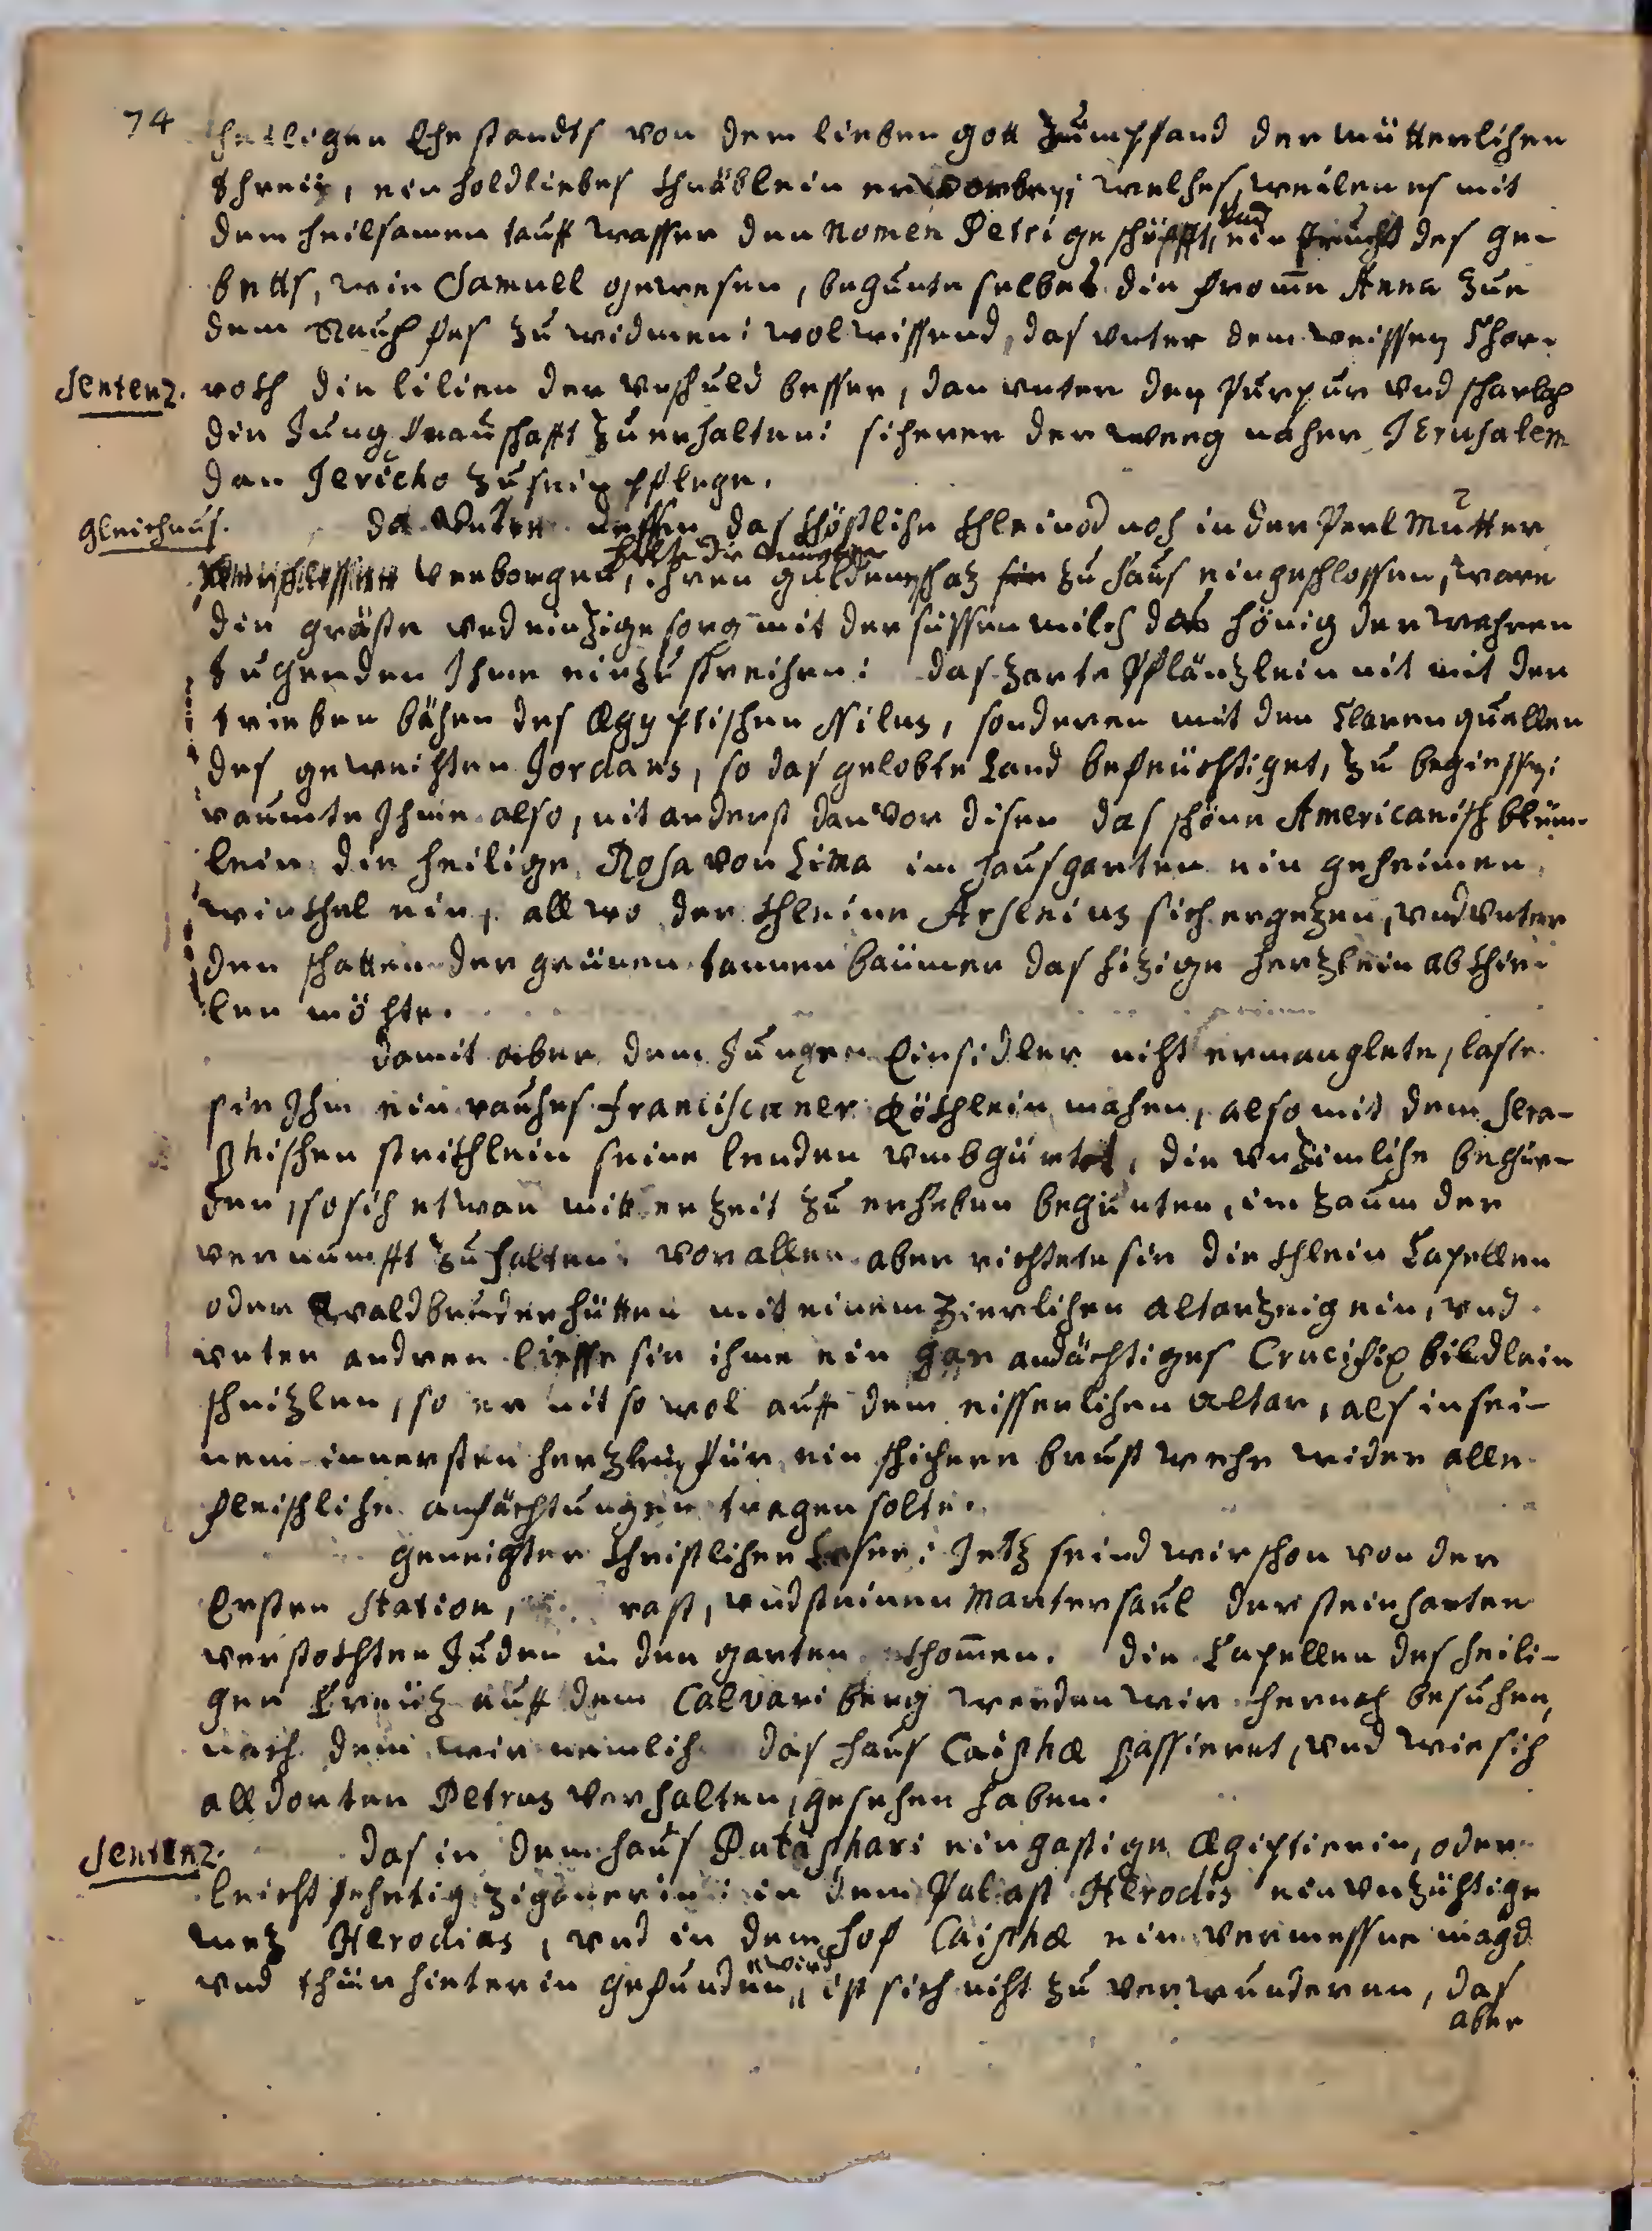 74
heilligen Ehestandts von dem lieben gott zum pfand der mütterlichen
threü, ein holdliebes khnäblein erworben; welches, weilen es mit
dem heilsamen tauff wasser den nomen Petri geschöpfft, und ein frucht des ge-
betts, wie Samuell gewesen, begunte selbes die fromme Anna zue
dem Rauchfas zu widmen: wol wissend, das unter dem weissen Chor-
Sentenz. roth die lilien der unschuld besser, dan unter den purpur und scharlach
die Jungfrauschafft zu erhalten: sicherer der weeg naher JErusalem
dan Jericho zu sein pflege.
Gleichnus. da unter dessen das khöstliche khleinod noch in der Perl Mutter
verborgen, ihren guldenen schaz zu haus eingeschlossen, ware
die gröste und einzige sorg mit der süssen milch das hönig der wahren
tugenden Ihme einzustreichen: das zarte Pflänzlein nit mit den
trieben bächen des Ægyptischen Nilus, sonderen mit den Claren quellen
des geweichten Jordans, so das gelobte Land befeüchtiget, zu begiessen;
raumte Ihme also, nit anderst dan vor disen das schöne Americanisch blüm-
lein die heilige Rosa von Lima im hausgarten ein geheimen
winkhel ein, allwo der khleine Arsenius sich ergezen, und unter
den schatten der grünen tannenbäumen das hizige herzlein abkhie-
len möchte.
damit aber dem Jungen Einsidler nicht ermanglete, laste
sie Ihm ein rauhes franciscaner Röckhlein machen, also mit dem Sera-
phischen strickhlein seine lenden umbgürtet, die unzimliche begür-
den, so sich etwan mitler zeit zu erheben begunten, im zaum der
vernumfft zu halten: vor allen aber richtete sie die khlein Capellen
oder waldbruderhütten mit einem zierlichen altarzeig ein, und
unter andren liesse sie ihme ein gar andächtiges Crucifix bildlein
schnizlen, so er nit so wol auff dem eisserlichen altar, als in sei-
nem innersten herzlein für ein sichere brustwehr wider alle
fleischliche anfächtungen tragen solte.
geneigter Christlicher Leser: Jetz seind wir schon von der
Ersten Station, rast, und steinen Martersaul der steinharten
verstockhten Juden in den garten khommen. die Capellen des heili-
gen Creüz auff dem Calvari berg werden wir hernach besuchen,
nach dem wir nemlich das haus Caiphæ passieret, und wie sich
alldorten Petrus verhalten, gesehen haben.
Sentenz. das in dem haus Putaphari ein gastige Ægiptierin, oder
leichtfehrtig zigeinerin: in dem Palast Herodis ein unzüchtige
mez Herodias, und in dem hof Caiphæ ein vermessne magd
und thürhieterin gefunden wird, ist sich nicht zu verwunderen, das
aber